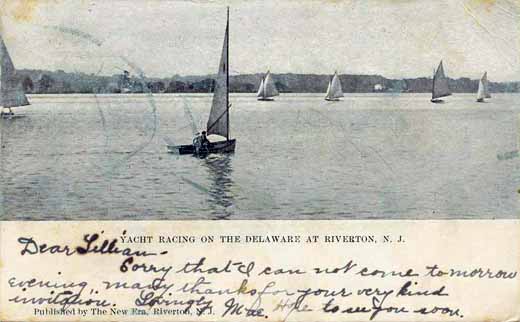 YACHT RACING ON THE DELAWARE AT RIVERTON, N. J.
Dear Lillian-
Sorry that I can not come tomorrow
evening, many thanks for your very kind
invitation. Lovingly Mae. Hope to see you soon.
Published by The New Era, Riverton, N. J.